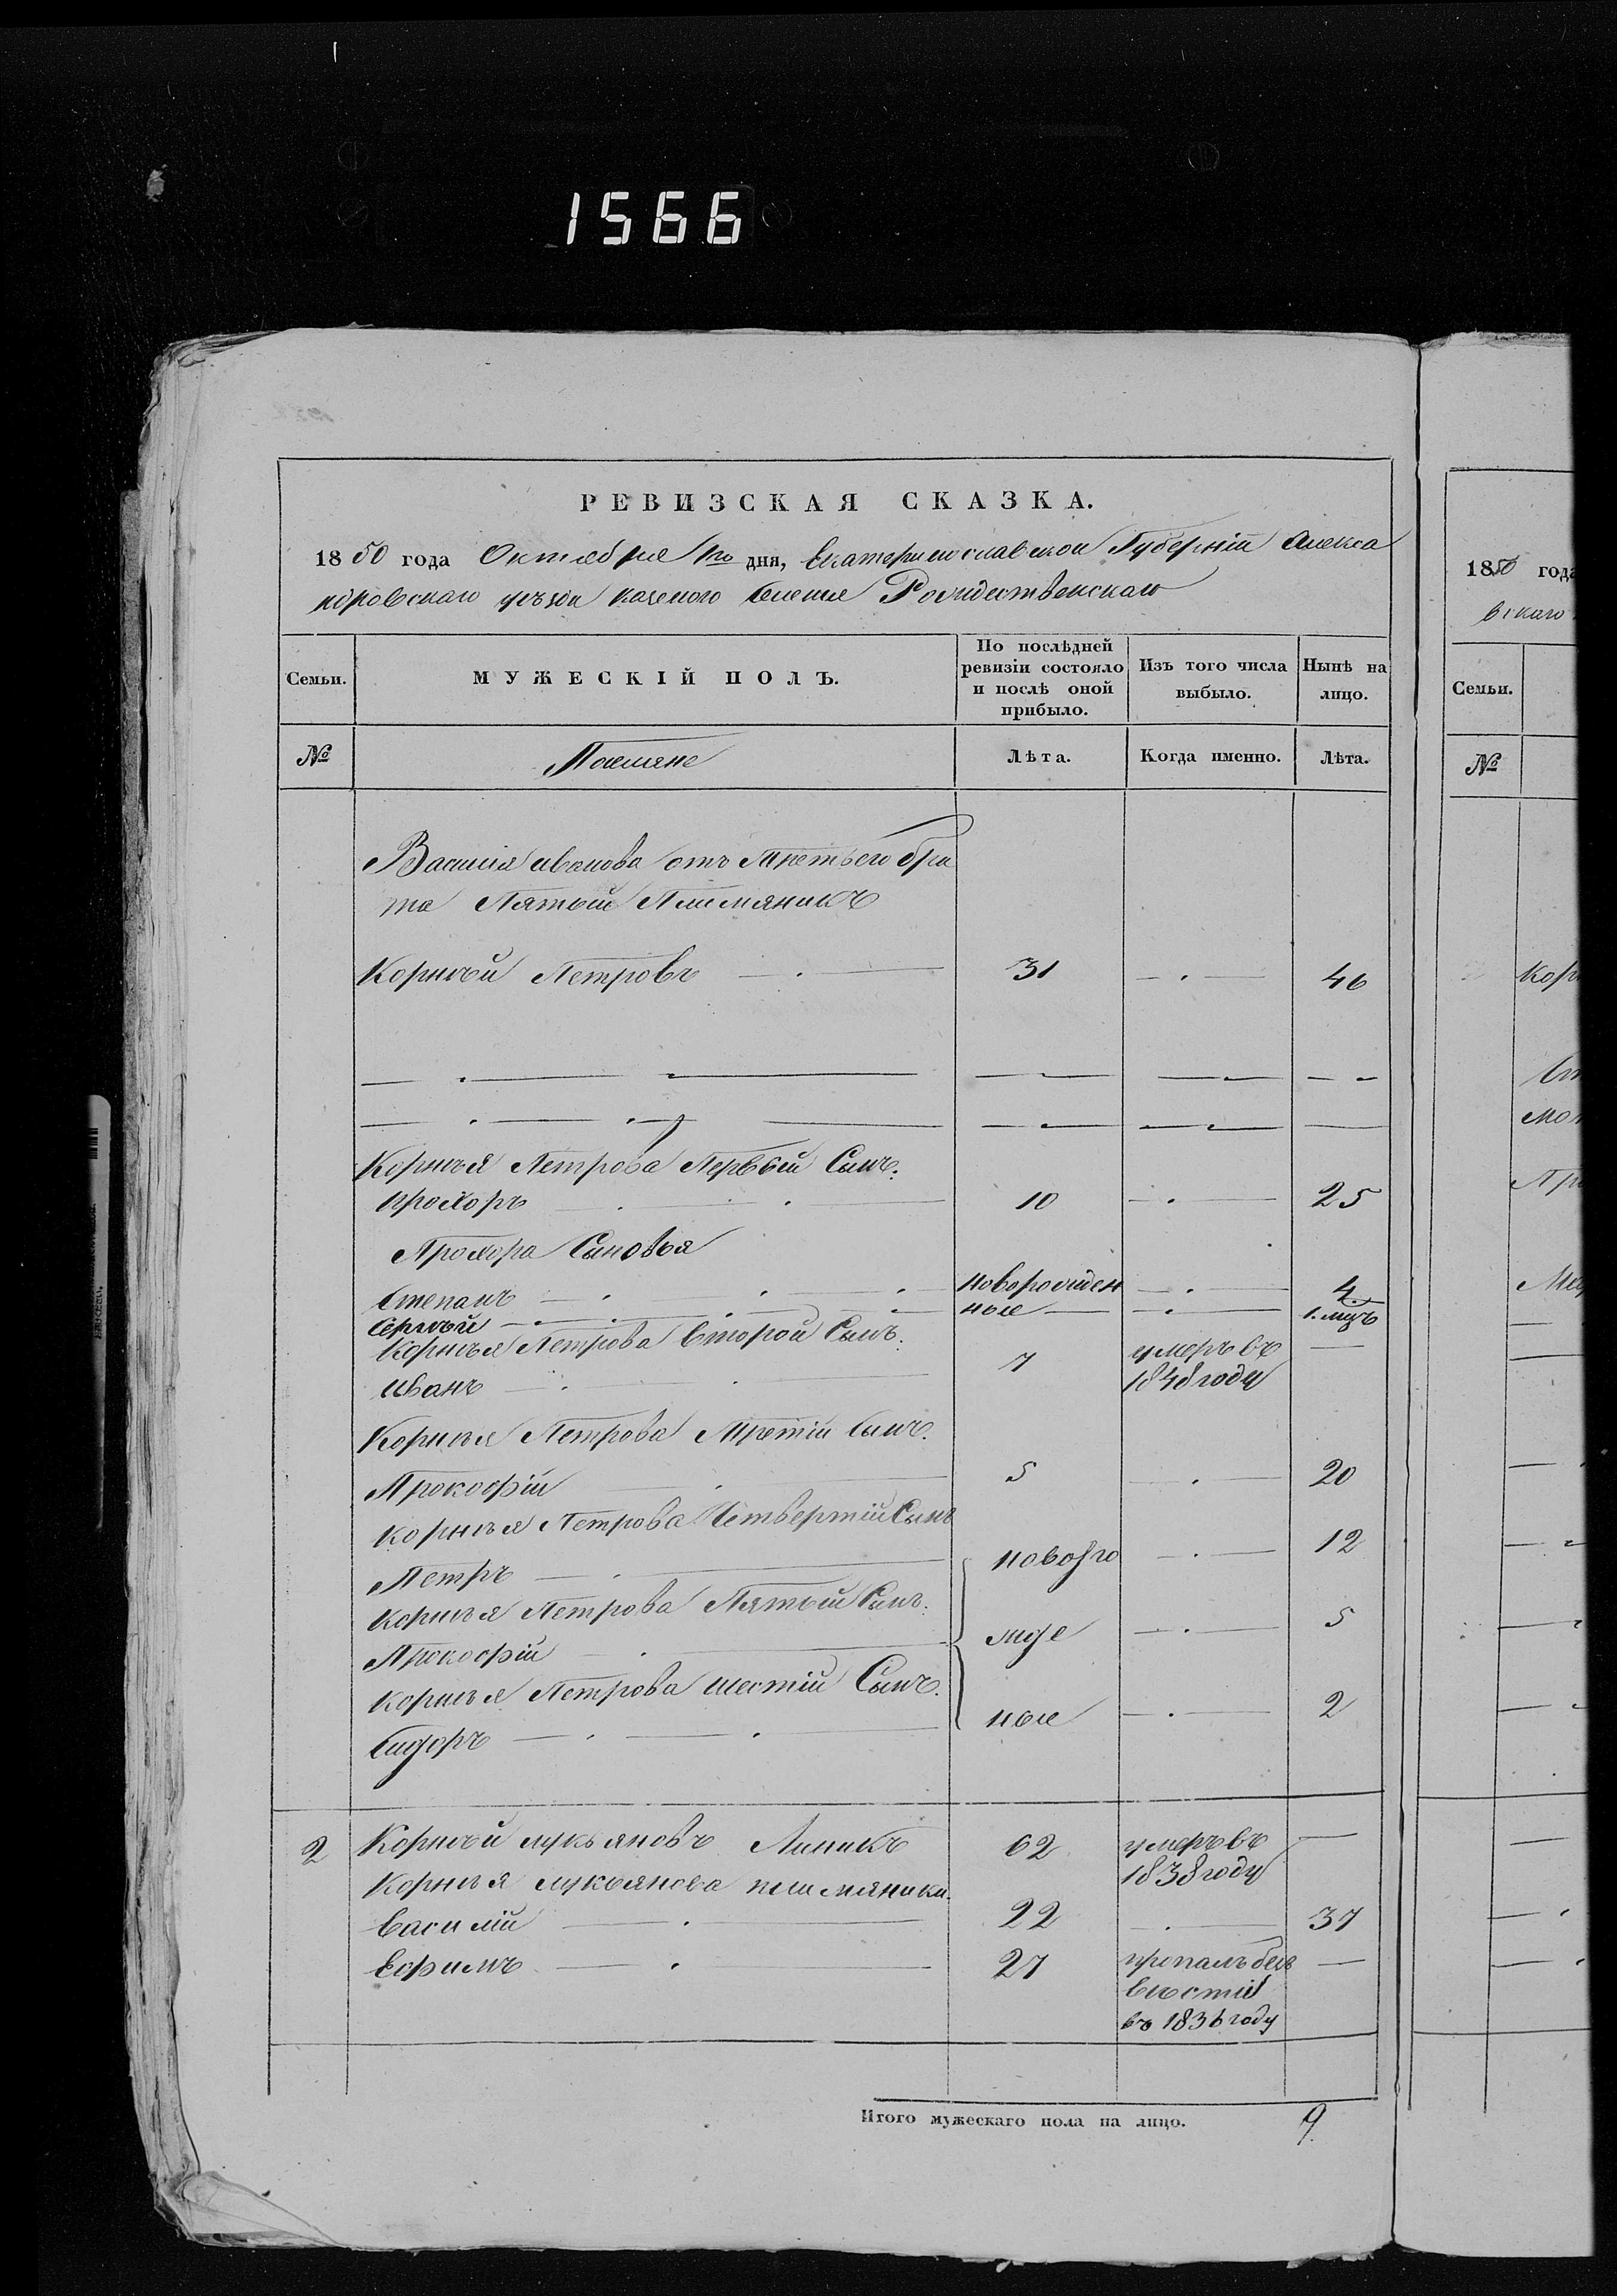 1566
РЕВИЗСКАЯ СКАЗКА.
1850 года Октября 1го дня, Екатеринославской Губерніи Алекса
ндровскаго уезда казеного Селенія Рождественскаго
Семьи. МУЖЕСКІЙ ПОЛЪ. По послѣдней ревизіи состояло и послѣ оной прибыло. Изъ того числа выбыло. Нынѣ на лицо.
№ Поселяне Лѣта. Когда именно. Лѣта.
Василія иванова отъ третьего бра
та Пятый Племяникъ
Корнѣй Петровъ 31 46
Корнѣя Петрова Первый Сынъ.
Прохоръ 10 25
Прохора Сыновья
Степанъ новорожден 4.
Сергѣй ные 1. мцъ
Корнѣя Петрова Второй Сынъ.
Иванъ 7 умеръ въ 1848 году
Корнѣя Петрова Третій Сынъ.
Прокофій 5 20
Корнѣя Петрова Четвертій Сынъ
Петръ новоро 12
Корнѣя Петрова Пятый Сынъ.
Прокофій жде 5
Корнѣя Петрова шестій Сынъ.
Сидоръ ные 2
2 Корнѣй лукьяновъ Линикъ 62 умеръ въ 1838 году
Корнѣя лукьянова племяники.
Василій 22 37
Ефимъ 27 пропалъ безъ вѣсти въ 1836 году
Итого мужескаго пола на лицо. 9.
1850 года
вскаго
Семьи.
№